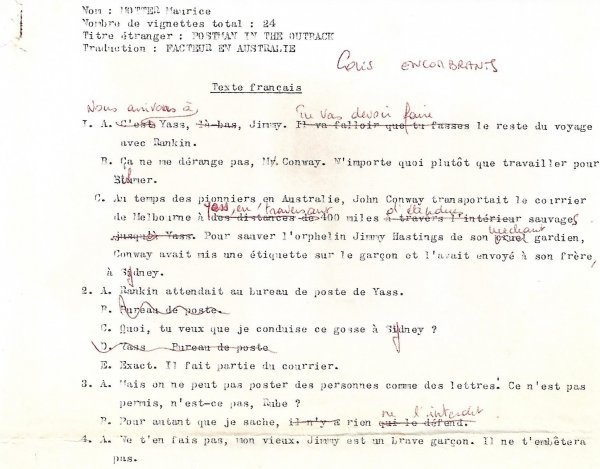 Nom : MOTTER Maurice
Nombre de vignettes total : 24
Titre étranger : POSTMAN IN THE OUTBACK
Traduction : FACTEUR EN AUSTRALIE
Colis ENCOMBRANTS
Texte français
Nous arrivons à, Tu vas devoir faire
1. A. C'est Yass, là-bas, Jimmy. Il va falloir que tu fasses le reste du voyage
avec Rankin.
B. Ça ne me dérange pas, Mr. Conway. N'importe quoi plutôt que travailler pour
C. Au temps des pionniers en Australie, John Conway transportait le courrier
Yass, en traversant d'étendues
de Melbourne à des distances de 400 miles à travers l'intérieur sauvages
méchant
jusqu'à Yass. Pour sauver l'orphelin Jimmy Hastings de son cruel gardien,
Conway avait mis une étiquette sur le garçon et l'avait envoyé à son frère,
à Sydney.
2. A. Rankin attendait au bureau de poste de Yass.
B. Bureau de poste.
C. Quoi, tu veux que je conduise ce gosse à Sydney ?
D. Yass Bureau de poste
E. Exact. Il fait partie du courrier.
3. A. Mais on ne peut pas poster des personnes comme des lettres. Ce n'est pas
permis, n'est-ce pas, Rube ?
ne l'interdit.
B. Pour autant que je sache, il n'y a rien qui le défend.
4. A. Ne t'en fais pas, mon vieux. Jimmy est un brave garçon. Il ne t'embêtera
pas.